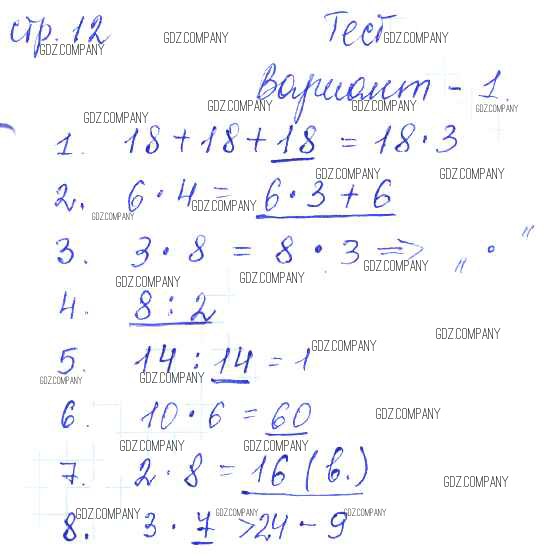 стр. 12 Тест
GDZ.COMPANY GDZ.COMPANY GDZ.COMPANY
Вариант - 1.
GDZ.COMPANY GDZ.COMPANY GDZ.COMPANY
GDZ.COMPANY
1. 18 + 18 + 18 = 18 · 3
GDZ.COMPANY GDZ.COMPANY
2. 6 · 4 = 6 · 3 + 6
GDZ.COMPANY GDZ.COMPANY
3. 3 · 8 = 8 · 3 => " · "
GDZ.COMPANY
GDZ.COMPANY GDZ.COMPANY
4. 8 : 2
GDZ.COMPANY
GDZ.COMPANY
5. 14 : 14 = 1
GDZ.COMPANY GDZ.COMPANY
6. 10 · 6 = 60
GDZ.COMPANY
GDZ.COMPANY GDZ.COMPANY
7. 2 · 8 = 16 (в.)
GDZ.COMPANY
8. 3 · 7 > 24 - 9
GDZ.COMPANY GDZ.COMPANY GDZ.COMPANY